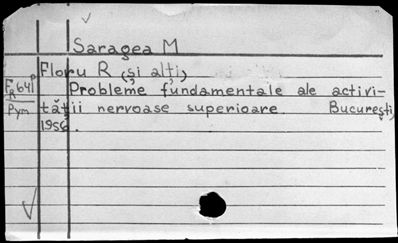 Saragea M
Floru R (și alți)
FR641P Probleme fundamentale ale activi-
Pym tății nervoase superioare. București,
1956.